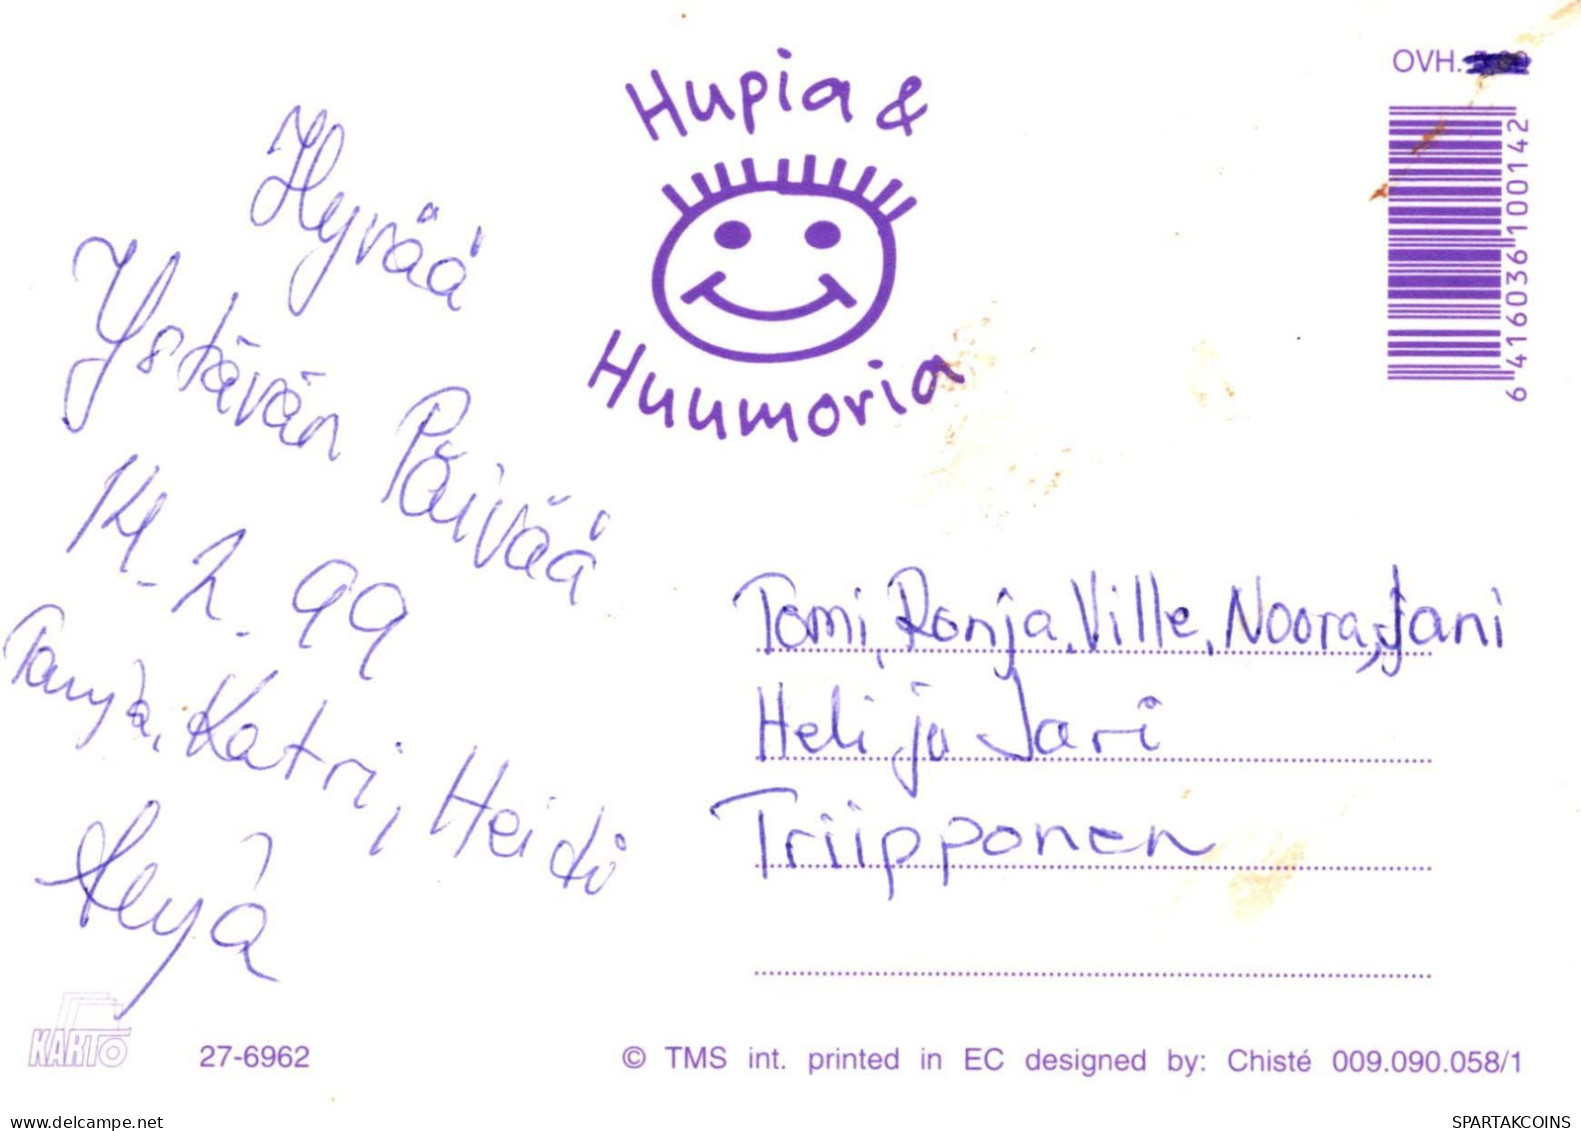 Hyvää
Ystävän Päivää
14.2.99
Tanja, Katri, Heidi
Hupia &
Huumoria
OVH.
6 416036 100142
Tomi, Ronja, Ville, Noora, Jani
Heli ja Jari
Triipponen
KARTO
27-6962
© TMS int. printed in EC designed by: Chisté 009.090.058/1
delcampe.net
SPARTAKCOINS